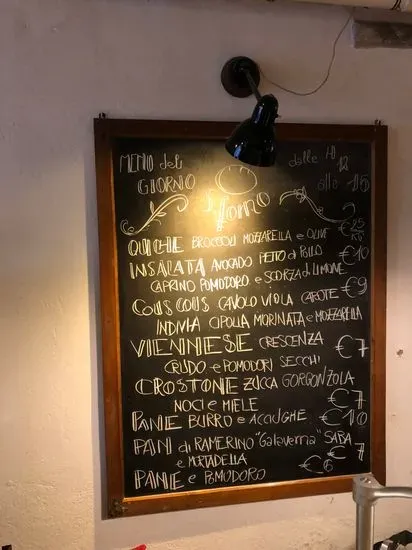 MENÙ del GIORNO
dalle 12
alle 15
il forno
QUICHE BROCCOLI MOZZARELLA e OLIVE €25 KG
INSALATA AVOCADO PETTO di POLLO €10
CAPRINO POMODORO e SCORZA di LIMONE
COUS COUS CAVOLO VIOLA CAROTE €9
INDIVIA CIPOLLA MARINATA e MOZZARELLA
VIENNESE CRESCENZA €7
CRUDO e POMODORI SECCHI
CROSTONE ZUCCA GORGONZOLA
NOCI e MIELE €7
PANE BURRO e ACCIUGHE €10
PAN di RAMERINO "Galaverna" SABA
e MORTADELLA €7
PANE e POMODORO €6